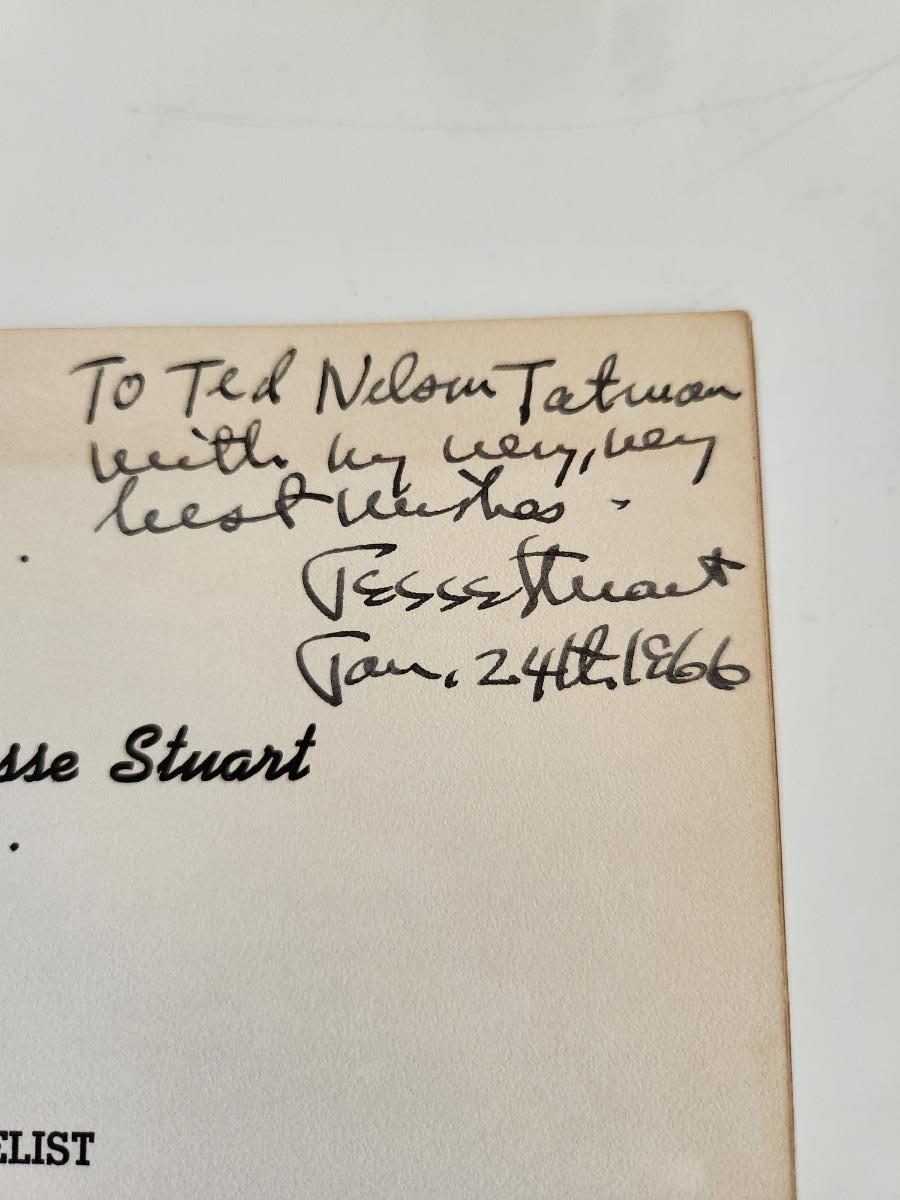 To Ted Nelson Tatman
with my very, very
best wishes -
Jesse Stuart
Jan. 24th. 1966
sse Stuart
ELIST